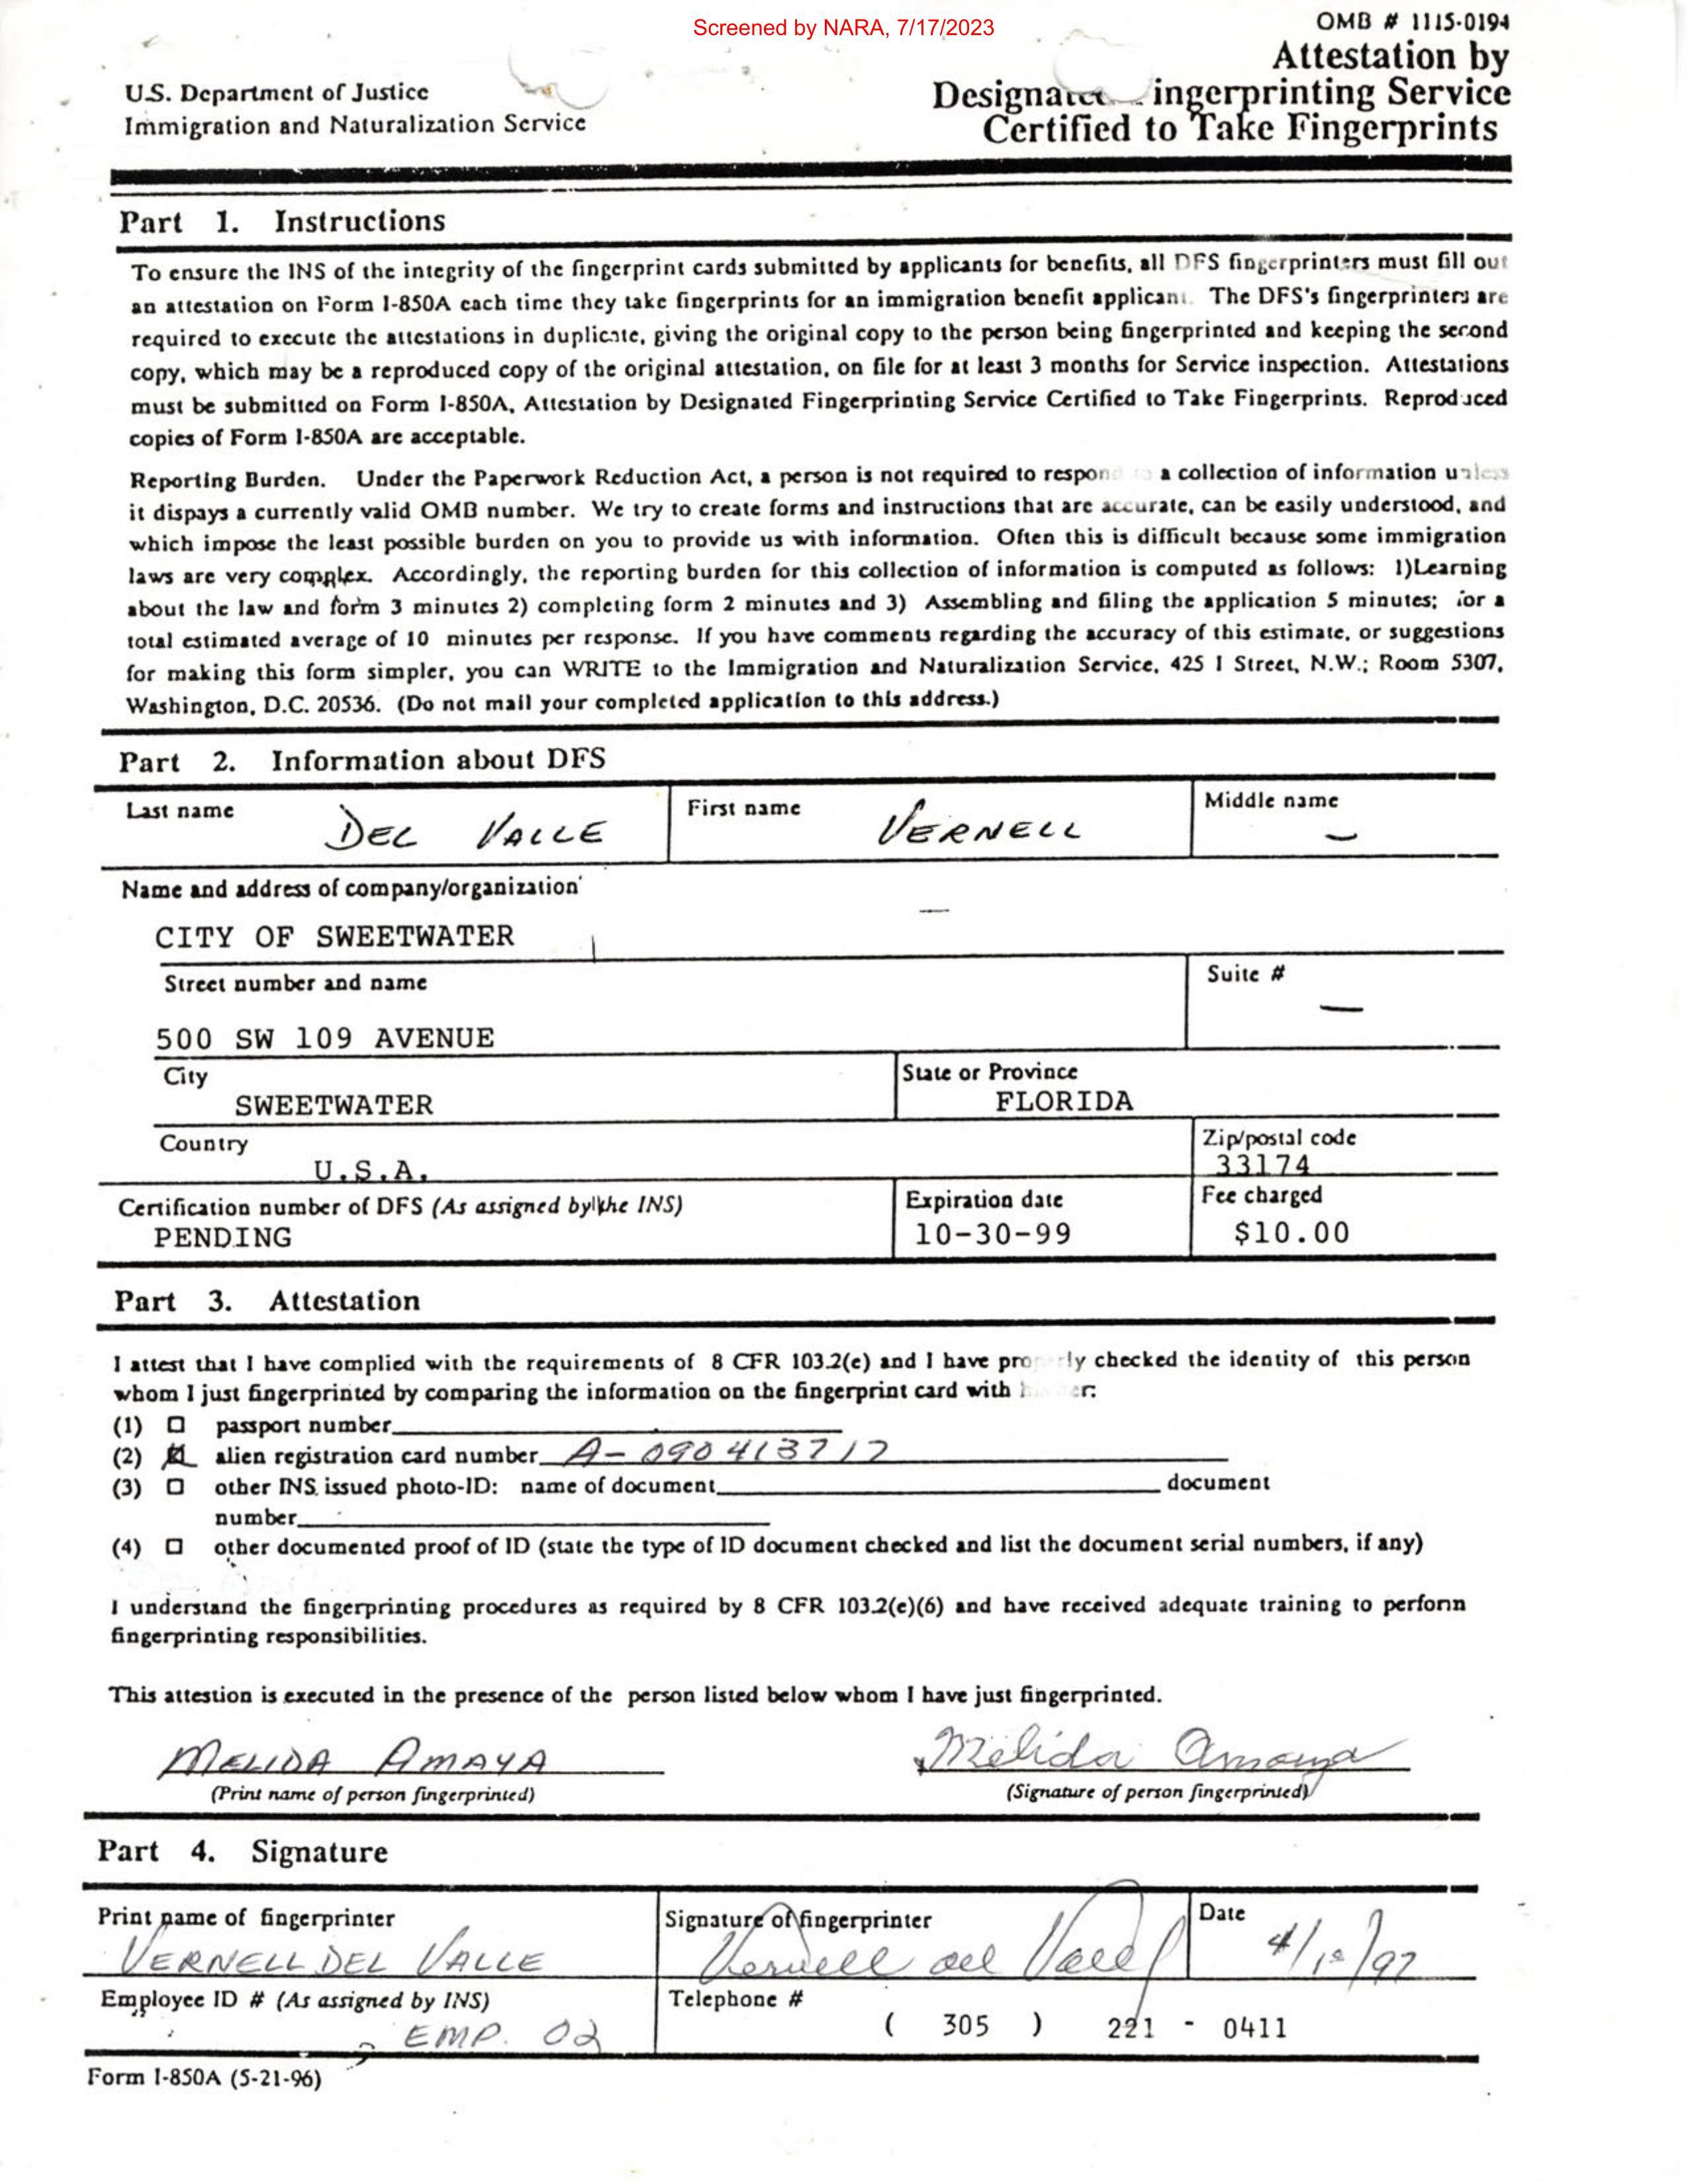 Screened by NARA, 7/17/2023
OMB # 1115-0194
Attestation by
U.S. Department of Justice
Designated ingerprinting Service
Immigration and Naturalization Service
Certified to Take Fingerprints
Part 1. Instructions
To ensure the INS of the integrity of the fingerprint cards submitted by applicants for benefits, all DFS fingerprinters must fill out
an attestation on Form I-850A each time they take fingerprints for an immigration benefit applicant. The DFS's fingerprinters are
required to execute the attestations in duplicate, giving the original copy to the person being fingerprinted and keeping the second
copy, which may be a reproduced copy of the original attestation, on file for at least 3 months for Service inspection. Attestations
must be submitted on Form I-850A, Attestation by Designated Fingerprinting Service Certified to Take Fingerprints. Reproduced
copies of Form I-850A are acceptable.
Reporting Burden. Under the Paperwork Reduction Act, a person is not required to respond to a collection of information unless
it dispays a currently valid OMB number. We try to create forms and instructions that are accurate, can be easily understood, and
which impose the least possible burden on you to provide us with information. Often this is difficult because some immigration
laws are very complex. Accordingly, the reporting burden for this collection of information is computed as follows: 1)Learning
about the law and form 3 minutes 2) completing form 2 minutes and 3) Assembling and filing the application 5 minutes; for a
total estimated average of 10 minutes per response. If you have comments regarding the accuracy of this estimate, or suggestions
for making this form simpler, you can WRITE to the Immigration and Naturalization Service, 425 I Street, N.W.; Room 5307,
Washington, D.C. 20536. (Do not mail your completed application to this address.)
Part 2. Information about DFS
Last name DEL VALLE First name VERNELL Middle name –
Name and address of company/organization
CITY OF SWEETWATER
Street number and name Suite # —
500 SW 109 AVENUE
City State or Province
SWEETWATER FLORIDA
Country Zip/postal code
U.S.A. 33174
Certification number of DFS (As assigned by the INS) Expiration date Fee charged
PENDING 10-30-99 $10.00
Part 3. Attestation
I attest that I have complied with the requirements of 8 CFR 103.2(e) and I have properly checked the identity of this person
whom I just fingerprinted by comparing the information on the fingerprint card with his/her:
(1) passport number
(2) alien registration card number A-090413717
(3) other INS issued photo-ID: name of document document
number
(4) other documented proof of ID (state the type of ID document checked and list the document serial numbers, if any)
I understand the fingerprinting procedures as required by 8 CFR 103.2(e)(6) and have received adequate training to perform
fingerprinting responsibilities.
This attestion is executed in the presence of the person listed below whom I have just fingerprinted.
MELIDA AMAYA Melida Amaya
(Print name of person fingerprinted) (Signature of person fingerprinted)
Part 4. Signature
Print name of fingerprinter Signature of fingerprinter Date
VERNELL DEL VALLE Vernell del Valle 4/10/97
Employee ID # (As assigned by INS) Telephone #
EMP. 02 ( 305 ) 221 - 0411
Form I-850A (5-21-96)